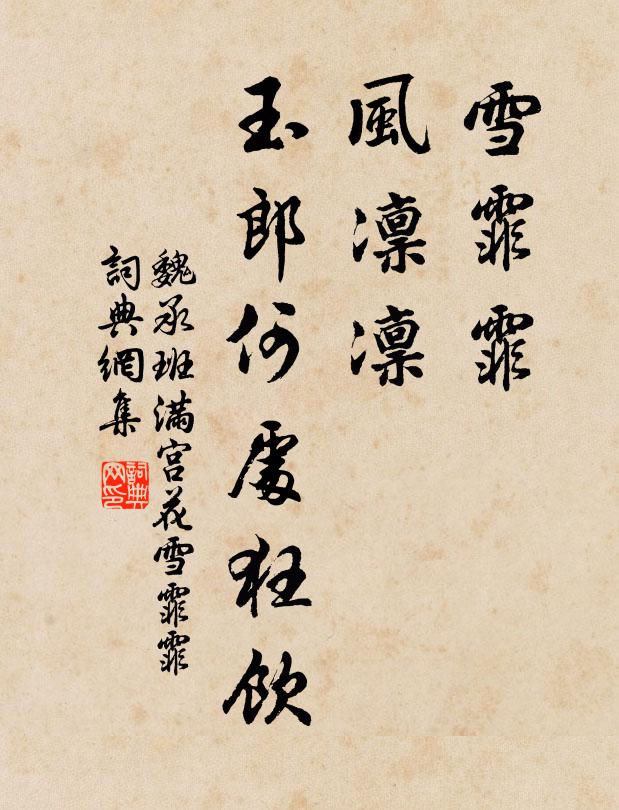 雪霏霏
風凜凜
玉郎何處狂飲
魏承班滿宮花雪霏霏
詞典網集
詞典网印